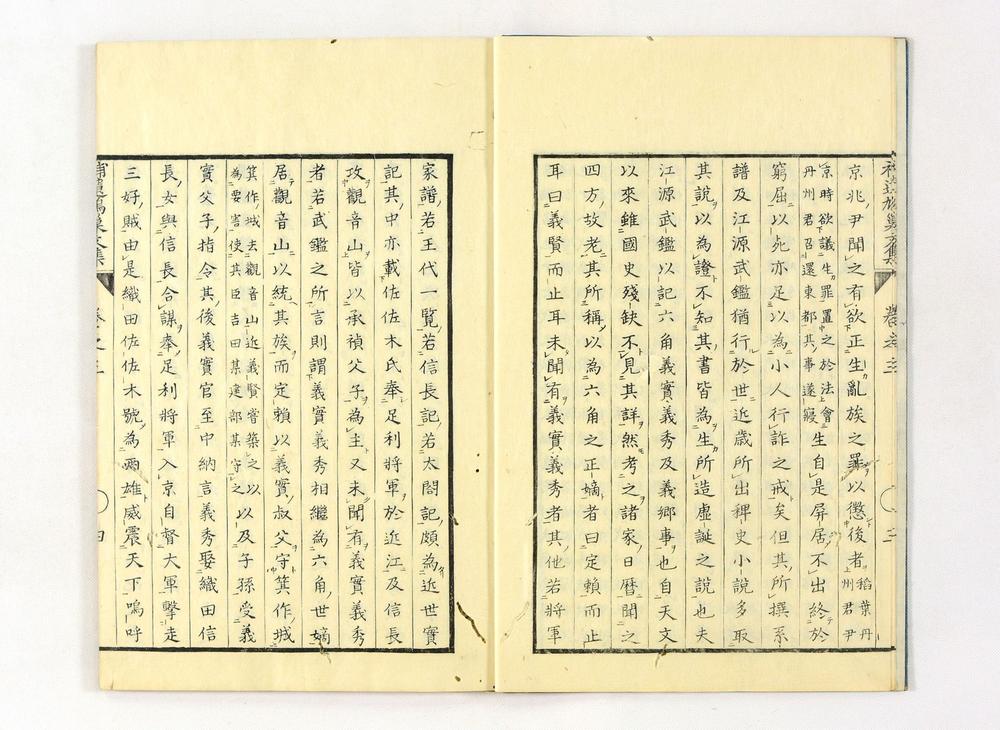 京兆尹聞之有欲正生亂族之罪以懲後者稻葉丹州君尹
京時欲議生罪置之於法會丹州君召還東都其事遂寢生自是屏居不出終於
窮屈以死亦足以為小人行詐之戒矣但其所撰系
譜及江源武鑑猶行於世近歲所出稗史小說多取
其說以為證不知其書皆為生所造虛誕之說也夫
江源武鑑以記六角義實義秀及義鄉事也自天文
以來雖國史殘缺不見其詳然考之諸家日曆聞之
四方故老其所稱以為六角之正嫡者曰定賴而止
耳曰義賢而止耳未聞有義實義秀者其他若將軍
卷之三
三
家譜若王代一覽若信長記若太閤記頗為近世實
記其中亦載佐佐木氏奉足利將軍於近江及信長
攻觀音山皆以承禎父子為主又未聞有義實義秀
者若武鑑之所言則謂義實義秀相繼為六角世嫡
居觀音山以統其族而定賴以義實叔父守箕作城
箕作城去觀音山近義賢嘗築之以為要害使其臣吉田某建部某守之以及子孫受義
實父子指令其後義實官至中納言義秀娶織田信
長女與信長合謀奉足利將軍入京自督大軍擊走
三好賊由是織田佐佐木號為兩雄威震天下嗚呼
卷之三
四